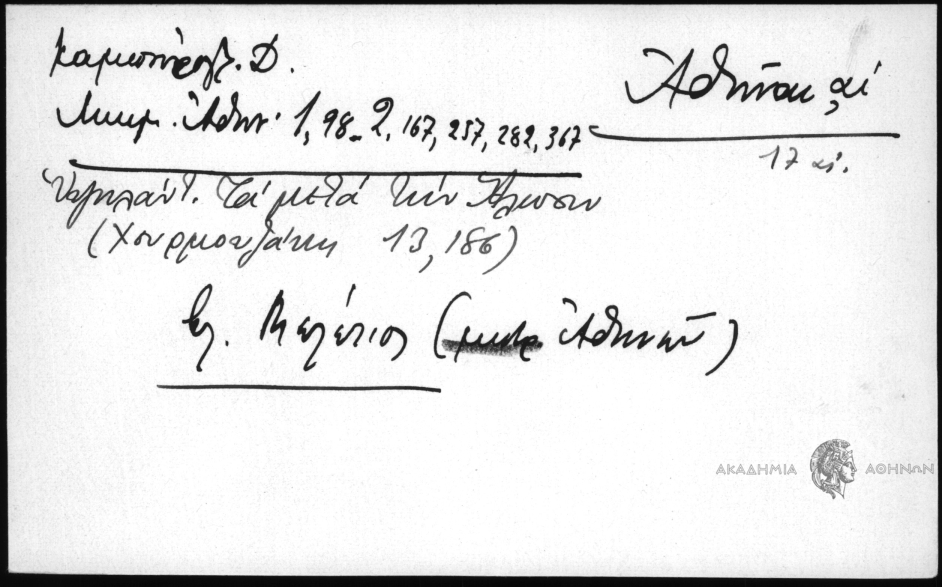 Καμπούρογλ. Δ.
Μνημ. Ἀθην. 1, 98 - 2, 167, 257, 282, 367
Ἀθῆναι, αἱ
17 αἰ.
Ὑψηλάντ. Τά μετά τήν Ἅλωσιν
(Χουρμουζάκη 13, 186)
Βλ. Μελέτιος (μητρ. Ἀθηνῶν)
ΑΚΑΔΗΜΙΑ ΑΘΗΝΩΝ